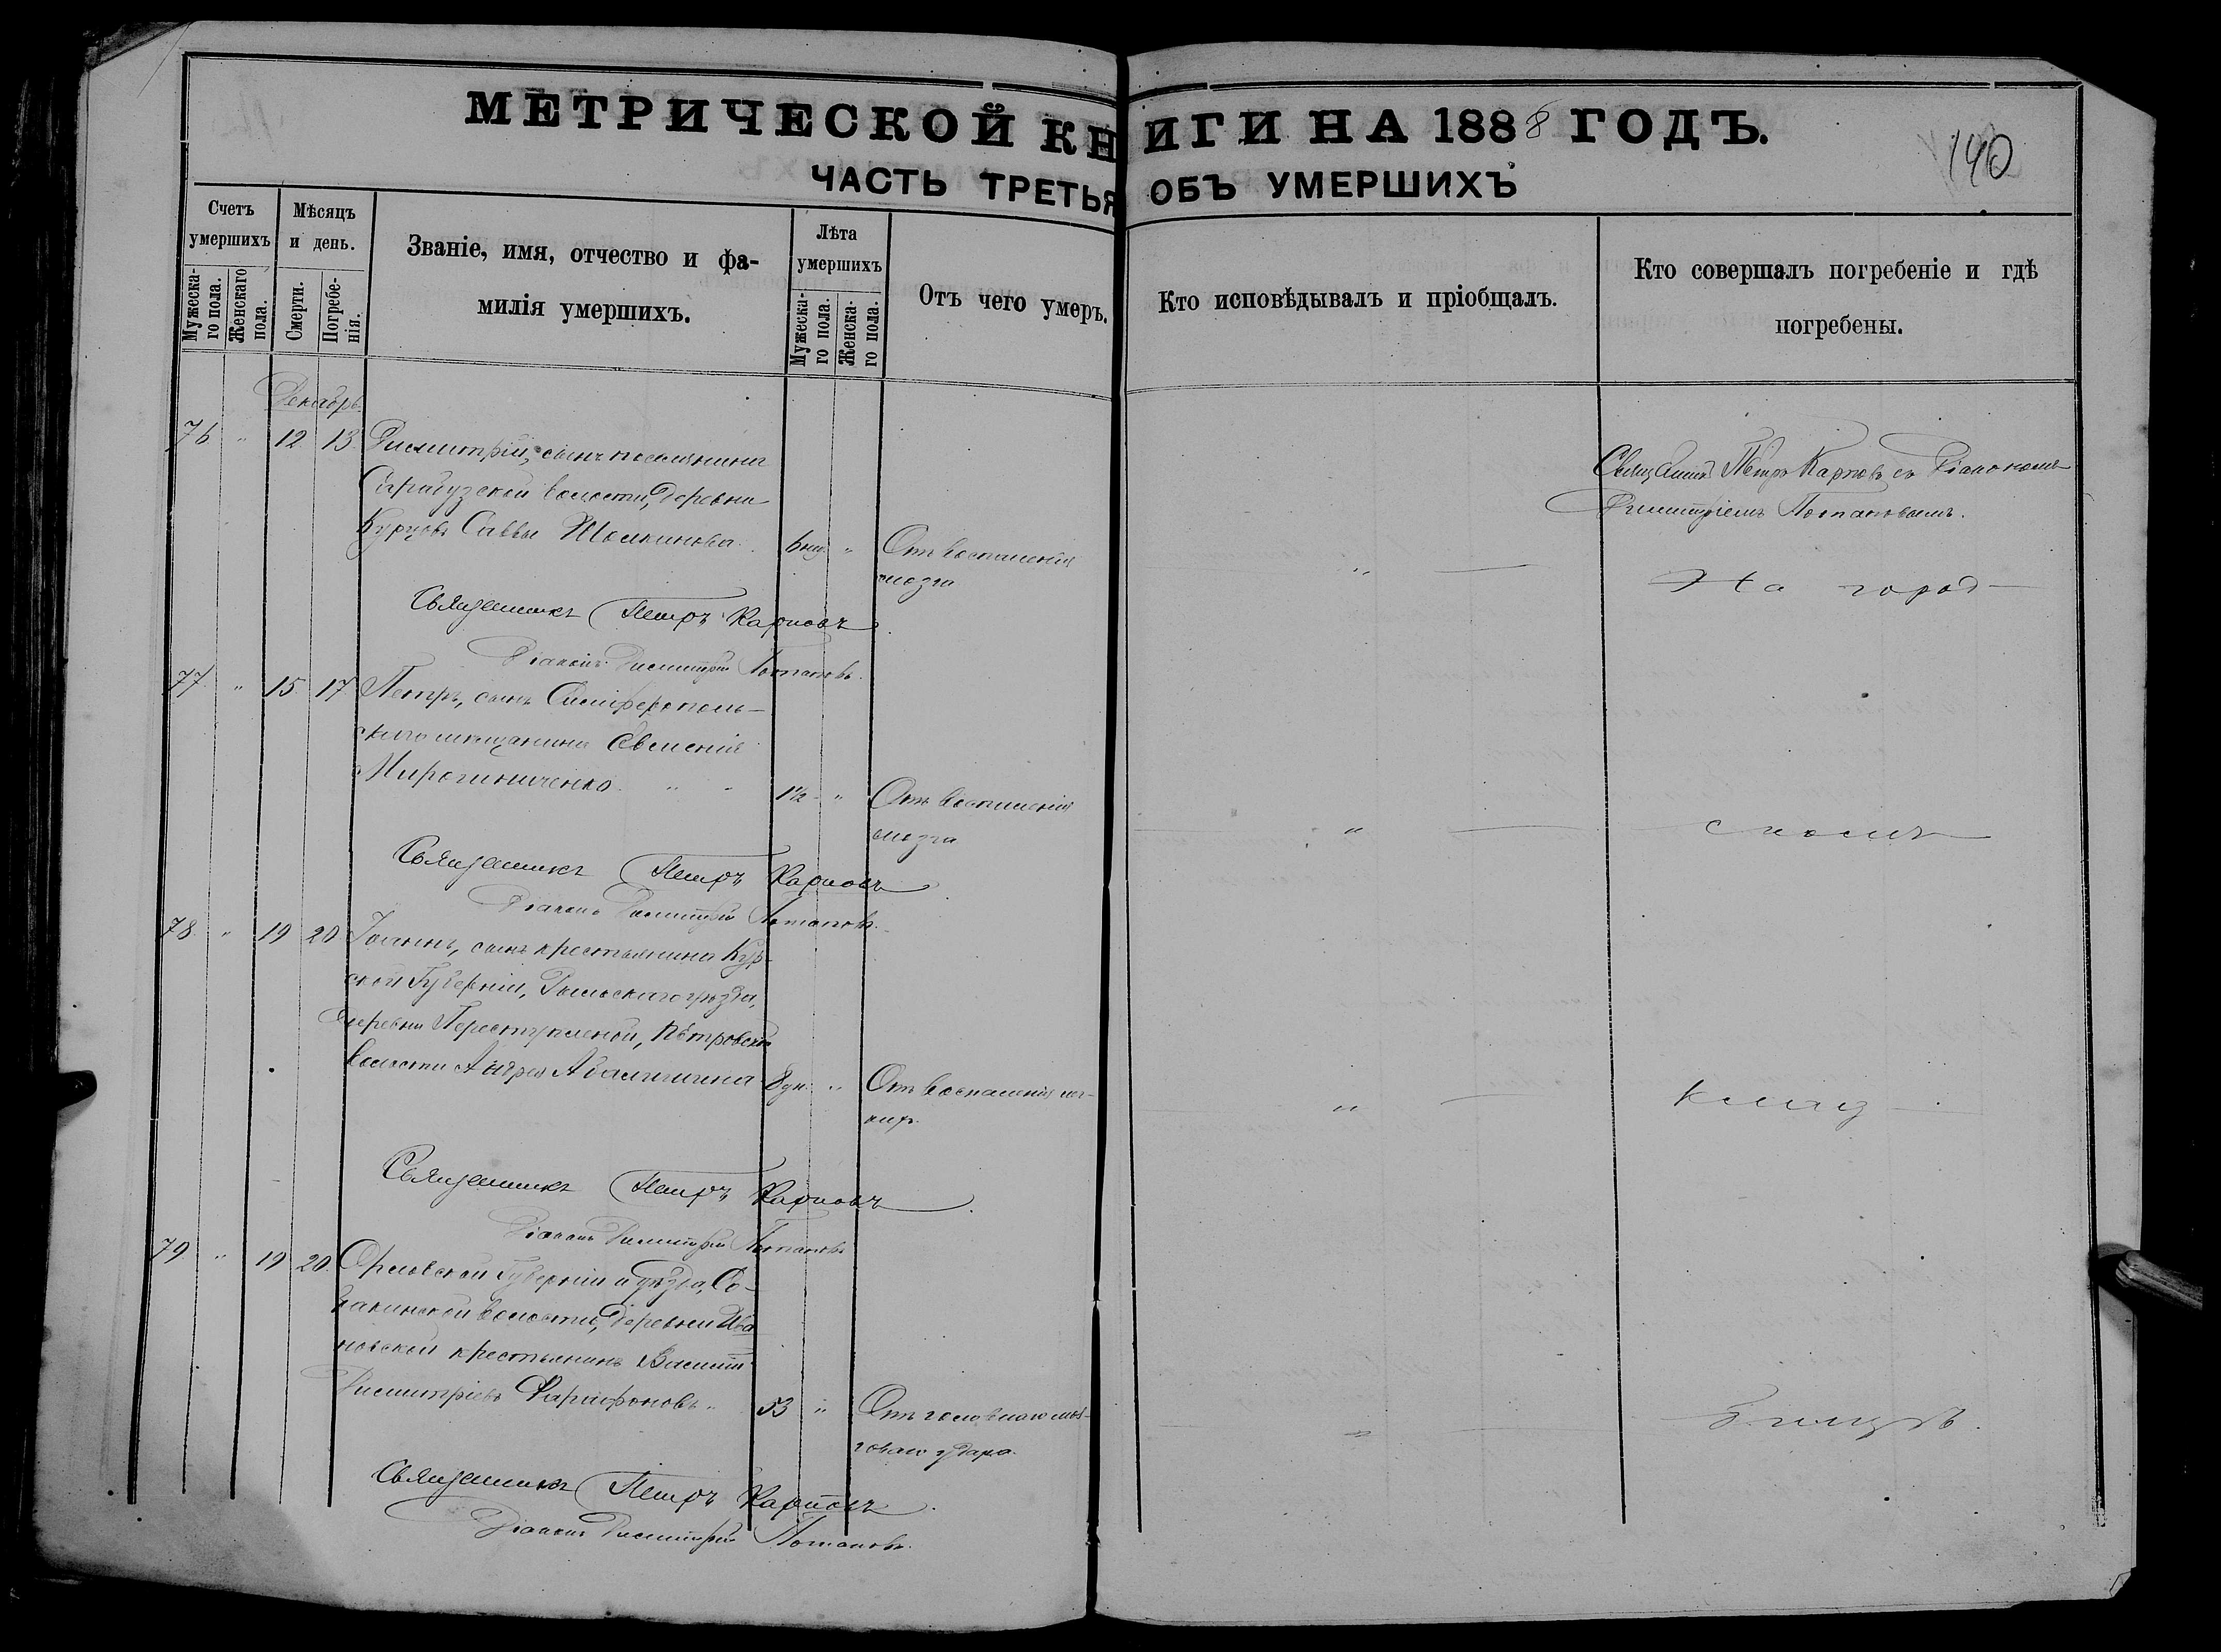 МЕТРИЧЕСКОЙ КНИГИ НА 1888 ГОДЪ.
140
ЧАСТЬ ТРЕТЬЯ ОБЪ УМЕРШИХЪ
Счетъ умершихъ
Мужеска-
го пола.
Женскаго
пола.
Мѣсяцъ
и день.
Смерти.
Погребе-
нія.
Званіе, имя, отчество и фа-
милія умершихъ.
Лѣта
умершихъ
Мужеска-
го пола.
Женска-
го пола.
Отъ чего умеръ.
Кто исповѣдывалъ и пріобщалъ.
Кто совершалъ погребеніе и гдѣ
погребены.
Декабрь
76 " 12 13 Димитрій, сынъ поселянина
Сарабузской волости, деревни
Курцовъ Саввы 6 " Отъ воспаленія
мозга
Священникъ Петръ Карповъ съ Діакономъ
Димитріемъ Потаповымъ.
" На город
Священникъ Петръ Карповъ
Діаконъ Димитрій Потаповъ.
77 " 15 17 Петръ, сынъ Симферополь-
скаго мѣщанина Евгенія
Мирошниченко " " 1½ " Отъ воспаленія
мозга
" скомъ
Священникъ Петръ Карповъ
Діаконъ Димитрій Потаповъ.
78 " 19 20 Іоаннъ, сынъ крестьянина Кур-
ской Губерніи, Рыльскаго уѣзда,
деревни Переступленой, Петровской
волости Андрея 8 дн. " Отъ воспаленія лег-
кихъ
" клад
Священникъ Петръ Карповъ
Діаконъ Димитрій Потаповъ
79 " 19 20 Орловской Губерніи и уѣзда, Со-
ракинской волости, деревни Ива
новской крестьянинъ Василій
Димитріевъ Фарафоновъ " 53 " Отъ головнаго моз-
говаго удара.
" бищѣ.
Священникъ Петръ Карповъ
Діаконъ Димитрій Потаповъ.